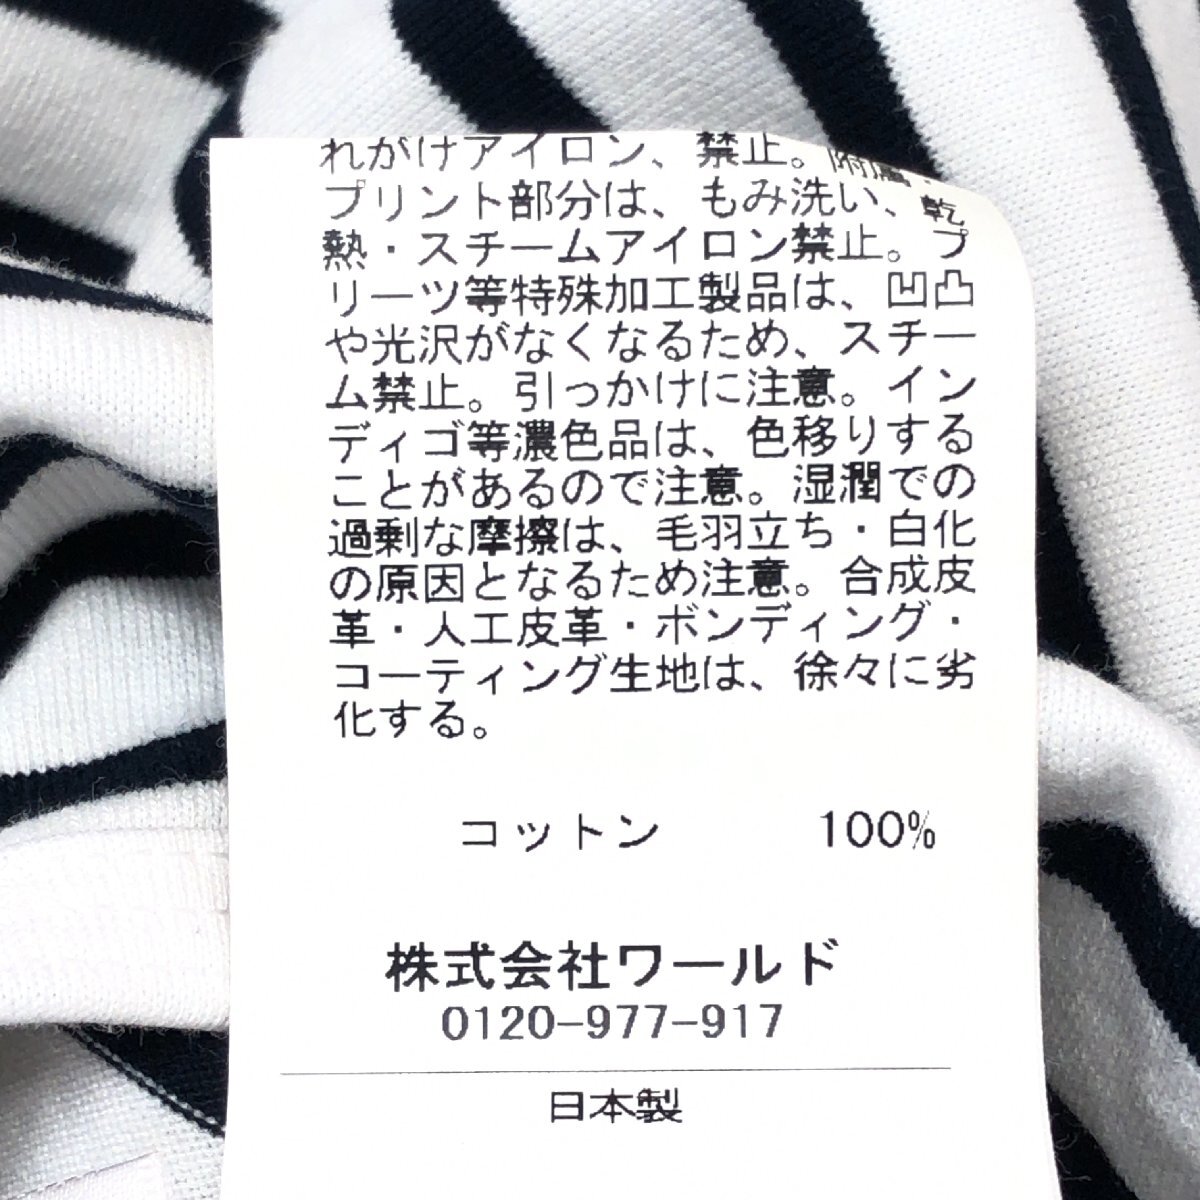 れがけアイロン、禁止。附属・
プリント部分は、もみ洗い、乾
熱・スチームアイロン禁止。プ
リーツ等特殊加工製品は、凹凸
や光沢がなくなるため、スチー
ム禁止。引っかけに注意。イン
ディゴ等濃色品は、色移りする
ことがあるので注意。湿潤での
過剰な摩擦は、毛羽立ち・白化
の原因となるため注意。合成皮
革・人工皮革・ボンディング・
コーティング生地は、徐々に劣
化する。
コットン 100%
株式会社ワールド
0120-977-917
日本製